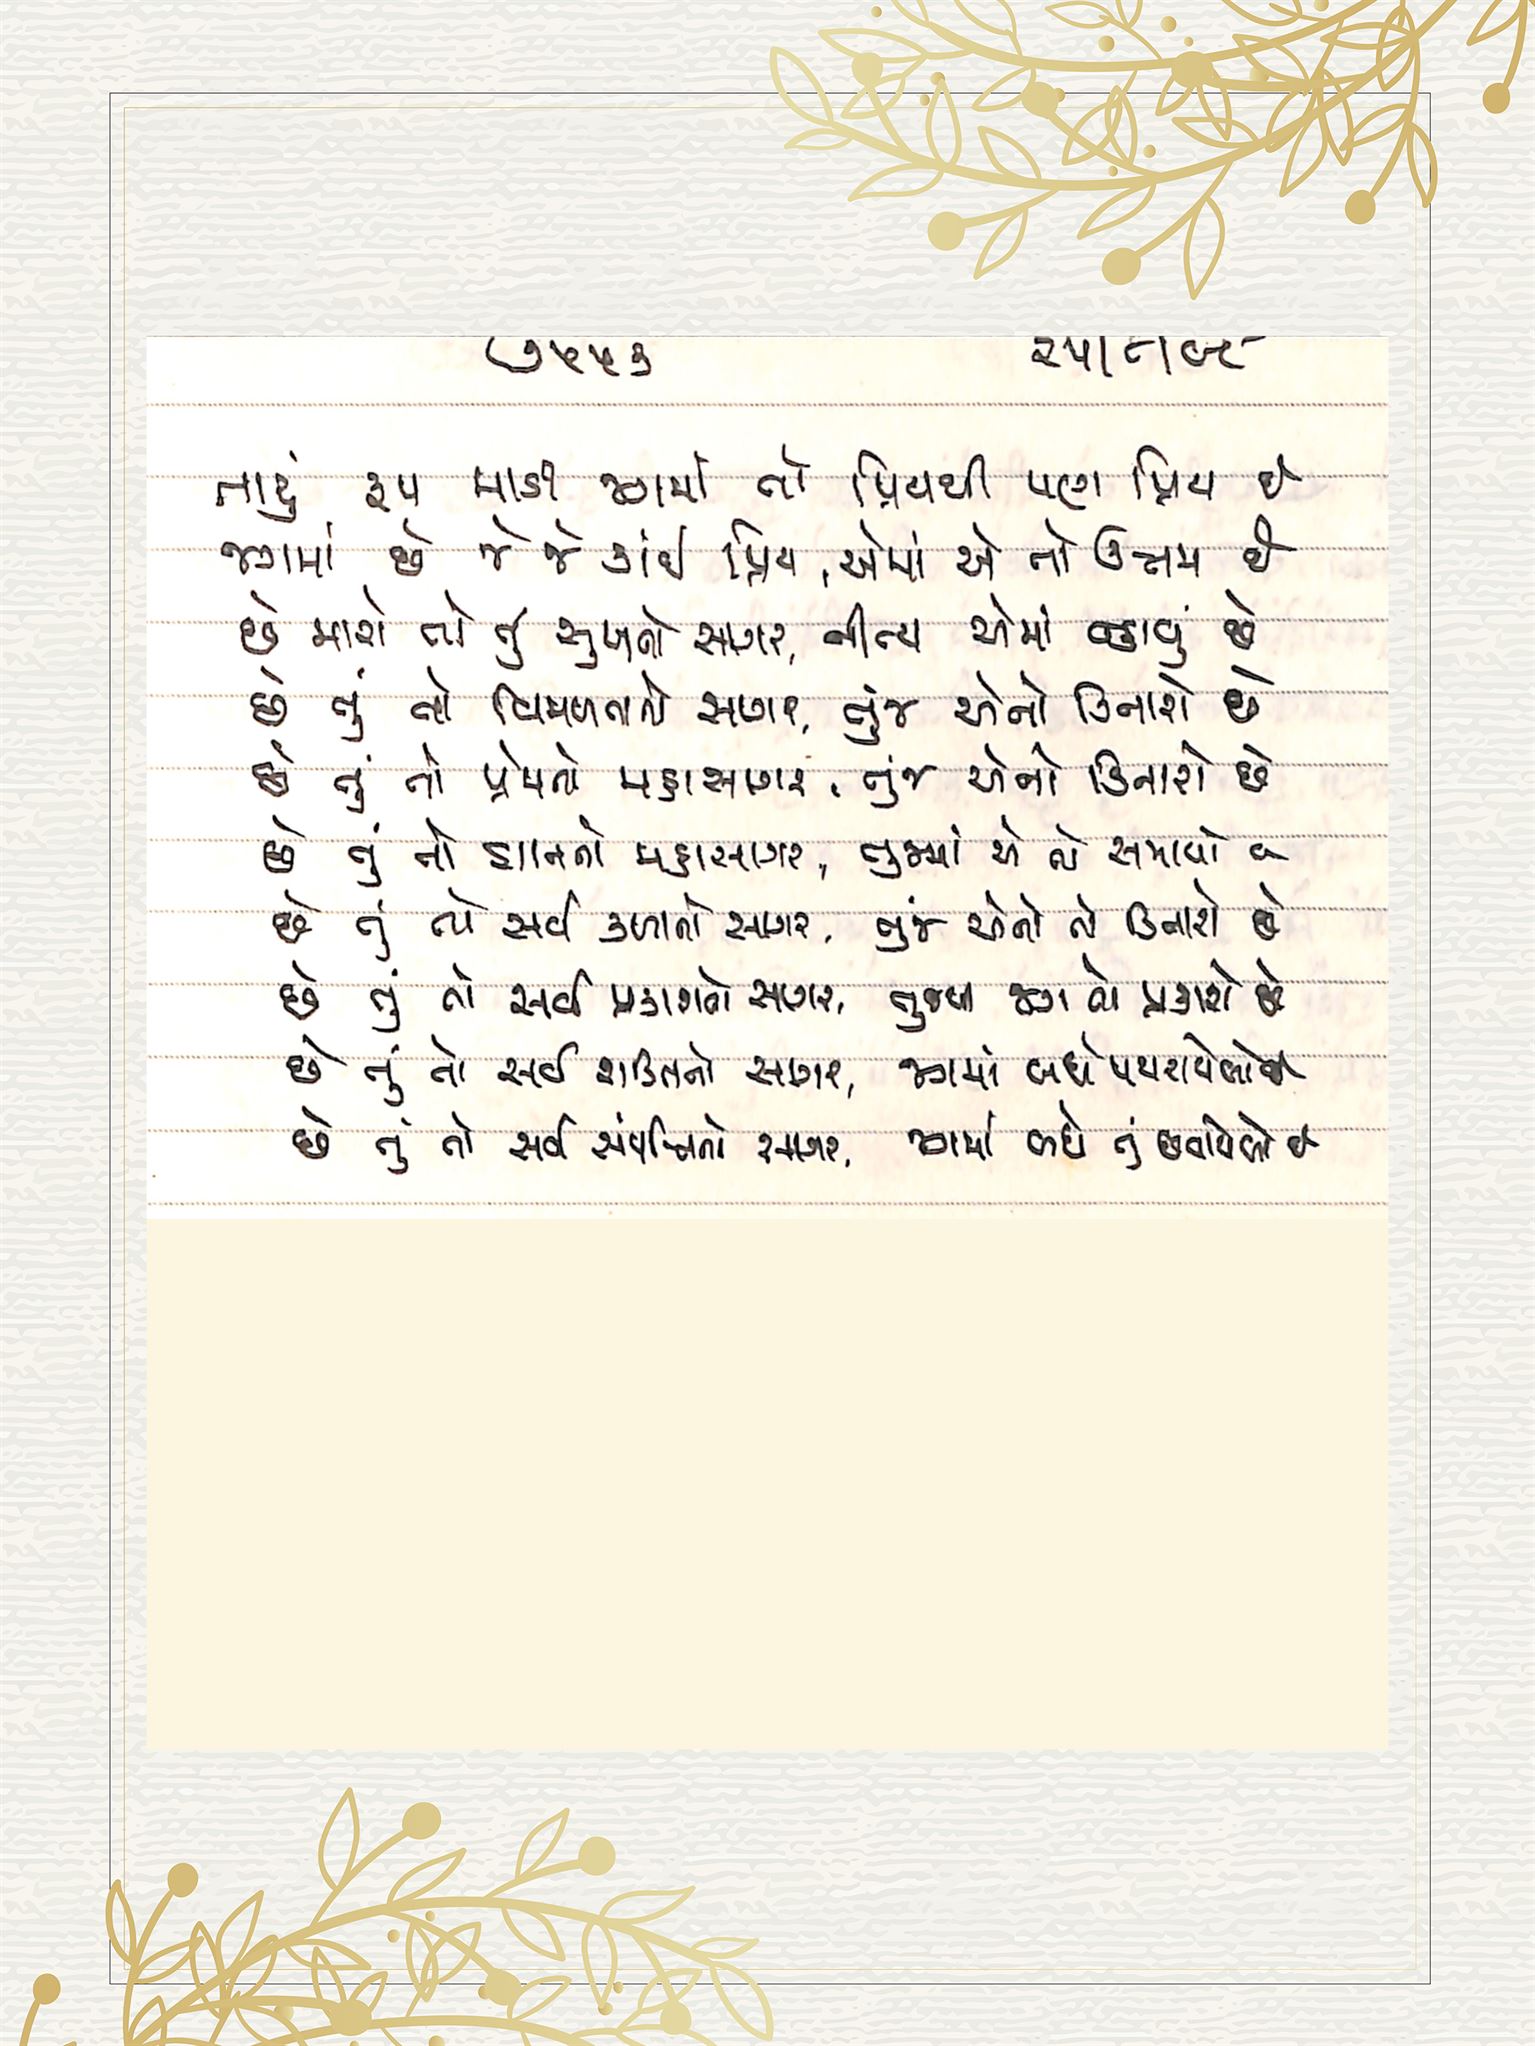 ૭૫૫૩
તારું રૂપ માડી જગમાં તો પ્રિયથી પણ પ્રિય છે
જગમાં છે જે જે કાંઈ પ્રિય, એમાં એ તો ઉત્તમ છે
છે મારો તો તું સુખનો સાગર, નીત્ય એમાં ન્હાવું છે
છે તું તો નિર્મળતાનો સાગર, તુંજ એનો કિનારો છે
છે તું તો પ્રેમનો મહાસાગર, તુંજ એનો કિનારો છે
છે તું તો જ્ઞાનનો મહાસાગર, તુજમાં એ તો સમાયો છે
છે તું તો સર્વ કળાનો સાગર, તુંજ એનો તો કિનારો છે
છે તું તો સર્વ પ્રકાશનો સાગર, તુજથી જગ તો પ્રકાશે છે
છે તું તો સર્વ શક્તિનો સાગર, જગમાં બધે પથરાયેલો છે
છે તું તો સર્વ સંપત્તિનો સાગર, જગમાં બધે તું છવાયેલો છે